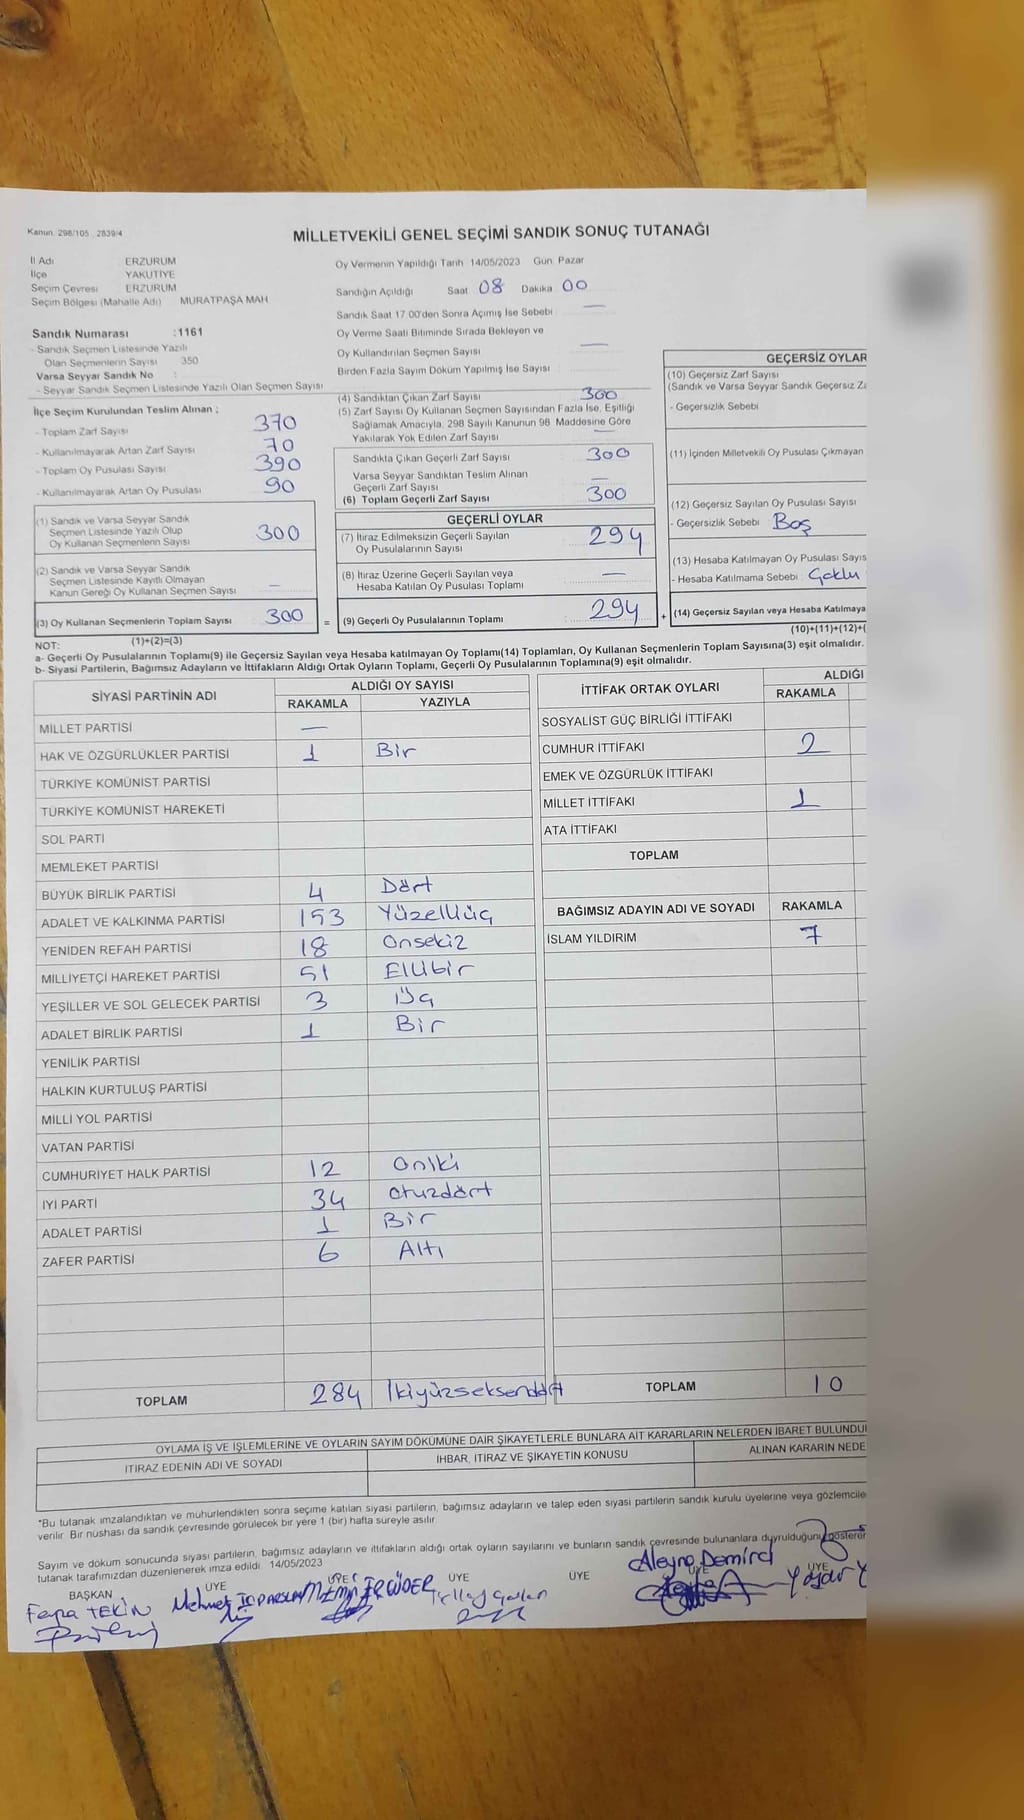 Kanun: 298/105 , 2839/4
MİLLETVEKİLİ GENEL SEÇİMİ SANDIK SONUÇ TUTANAĞI
İl Adı ERZURUM
İlçe YAKUTİYE
Seçim Çevresi ERZURUM
Seçim Bölgesi (Mahalle Adı) MURATPAŞA MAH
Sandık Numarası :1161
- Sandık Seçmen Listesinde Yazılı
Olan Seçmenlerin Sayısı 350
Varsa Seyyar Sandık No :
- Seyyar Sandık Seçmen Listesinde Yazılı Olan Seçmen Sayısı
Oy Vermenin Yapıldığı Tarih 14/05/2023 Gün Pazar
Sandığın Açıldığı Saat 08 Dakika 00
Sandık Saat 17.00'den Sonra Açımış İse Sebebi —
Oy Verme Saati Bitiminde Sırada Bekleyen ve
Oy Kullandırılan Seçmen Sayısı —
Birden Fazla Sayım Döküm Yapılmış İse Sayısı
İlçe Seçim Kurulundan Teslim Alınan ;
- Toplam Zarf Sayısı 370
- Kullanılmayarak Artan Zarf Sayısı 70
- Toplam Oy Pusulası Sayısı 390
- Kullanılmayarak Artan Oy Pusulası 90
(1) Sandık ve Varsa Seyyar Sandık
Seçmen Listesinde Yazılı Olup
Oy Kullanan Seçmenlerin Sayısı 300
(2) Sandık ve Varsa Seyyar Sandık
Seçmen Listesinde Kayıtlı Olmayan
Kanun Gereği Oy Kullanan Seçmen Sayısı —
(3) Oy Kullanan Seçmenlerin Toplam Sayısı 300
(1)+(2)=(3)
(4) Sandıktan Çıkan Zarf Sayısı 300
(5) Zarf Sayısı Oy Kullanan Seçmen Sayısından Fazla İse, Eşitliği
Sağlamak Amacıyla, 298 Sayılı Kanunun 98 Maddesine Göre
Yakılarak Yok Edilen Zarf Sayısı —
Sandıkta Çıkan Geçerli Zarf Sayısı 300
Varsa Seyyar Sandıktan Teslim Alınan
Geçerli Zarf Sayısı —
(6) Toplam Geçerli Zarf Sayısı 300
GEÇERLİ OYLAR
(7) İtiraz Edilmeksizin Geçerli Sayılan
Oy Pusulalarının Sayısı 294
(8) İtiraz Üzerine Geçerli Sayılan veya
Hesaba Katılan Oy Pusulası Toplamı —
= (9) Geçerli Oy Pusulalarının Toplamı 294 +
GEÇERSİZ OYLAR
(10) Geçersiz Zarf Sayısı
(Sandık ve Varsa Seyyar Sandık Geçersiz
- Geçersizlik Sebebi
(11) İçinden Milletvekili Oy Pusulası Çıkmayan
(12) Geçersiz Sayılan Oy Pusulası Sayısı
- Geçersizlik Sebebi Boş
(13) Hesaba Katılmayan Oy Pusulası Sayıs
- Hesaba Katılmama Sebebi : Çoklu
(14) Geçersiz Sayılan veya Hesaba Katılmaya
(10)+(11)+(12)+(
NOT:
a- Geçerli Oy Pusulalarının Toplamı(9) ile Geçersiz Sayılan veya Hesaba katılmayan Oy Toplamı(14) Toplamları, Oy Kullanan Seçmenlerin Toplam Sayısına(3) eşit olmalıdır.
b- Siyasi Partilerin, Bağımsız Adayların ve İttifakların Aldığı Ortak Oyların Toplamı, Geçerli Oy Pusulalarının Toplamına(9) eşit olmalıdır.
SİYASİ PARTİNİN ADI ALDIĞI OY SAYISI
RAKAMLA YAZIYLA
MİLLET PARTİSİ —
HAK VE ÖZGÜRLÜKLER PARTİSİ 1 Bir
TÜRKİYE KOMÜNİST PARTİSİ
TÜRKİYE KOMÜNİST HAREKETİ
SOL PARTİ
MEMLEKET PARTİSİ
BÜYÜK BİRLİK PARTİSİ 4 Dört
ADALET VE KALKINMA PARTİSİ 153 Yüzelliüç
YENİDEN REFAH PARTİSİ 18 Onsekiz
MİLLİYETÇİ HAREKET PARTİSİ 51 Ellibir
YEŞİLLER VE SOL GELECEK PARTİSİ 3 Üç
ADALET BİRLİK PARTİSİ 1 Bir
YENİLİK PARTİSİ
HALKIN KURTULUŞ PARTİSİ
MİLLİ YOL PARTİSİ
VATAN PARTİSİ
CUMHURİYET HALK PARTİSİ 12 Oniki
İYİ PARTİ 34 otuzdört
ADALET PARTİSİ 1 Bir
ZAFER PARTİSİ 6 Altı
TOPLAM 284 İkiyüzseksendört
İTTİFAK ORTAK OYLARI ALDIĞI
RAKAMLA
SOSYALİST GÜÇ BİRLİĞİ İTTİFAKI
CUMHUR İTTİFAKI 2
EMEK VE ÖZGÜRLÜK İTTİFAKI
MİLLET İTTİFAKI 1
ATA İTTİFAKI
TOPLAM
BAĞIMSIZ ADAYIN ADI VE SOYADI RAKAMLA
İSLAM YILDIRIM 7
TOPLAM 10
OYLAMA İŞ VE İŞLEMLERİNE VE OYLARIN SAYIM DÖKÜMÜNE DAİR ŞİKAYETLERLE BUNLARA AİT KARARLARIN NELERDEN İBARET BULUNDU
İTİRAZ EDENİN ADI VE SOYADI İHBAR, İTİRAZ VE ŞİKAYETİN KONUSU ALINAN KARARIN NEDE
*Bu tutanak imzalandıktan ve mühürlendikten sonra seçime katılan siyasi partilerin, bağımsız adayların ve talep eden siyasi partilerin sandık kurulu üyelerine veya gözlemcile
verilir. Bir nüshası da sandık çevresinde görülecek bir yere 1 (bir) hafta süreyle asılır.
Sayım ve döküm sonucunda siyasi partilerin, bağımsız adayların ve ittifakların aldığı ortak oyların sayılarını ve bunların sandık çevresinde bulunanlara duyrulduğunu gösteren
tutanak tarafımızdan düzenlenerek imza edildi. 14/05/2023
BAŞKAN ÜYE ÜYE ÜYE ÜYE ÜYE ÜYE
TEKİN Mehmet Aleyna Demirci Yaşar